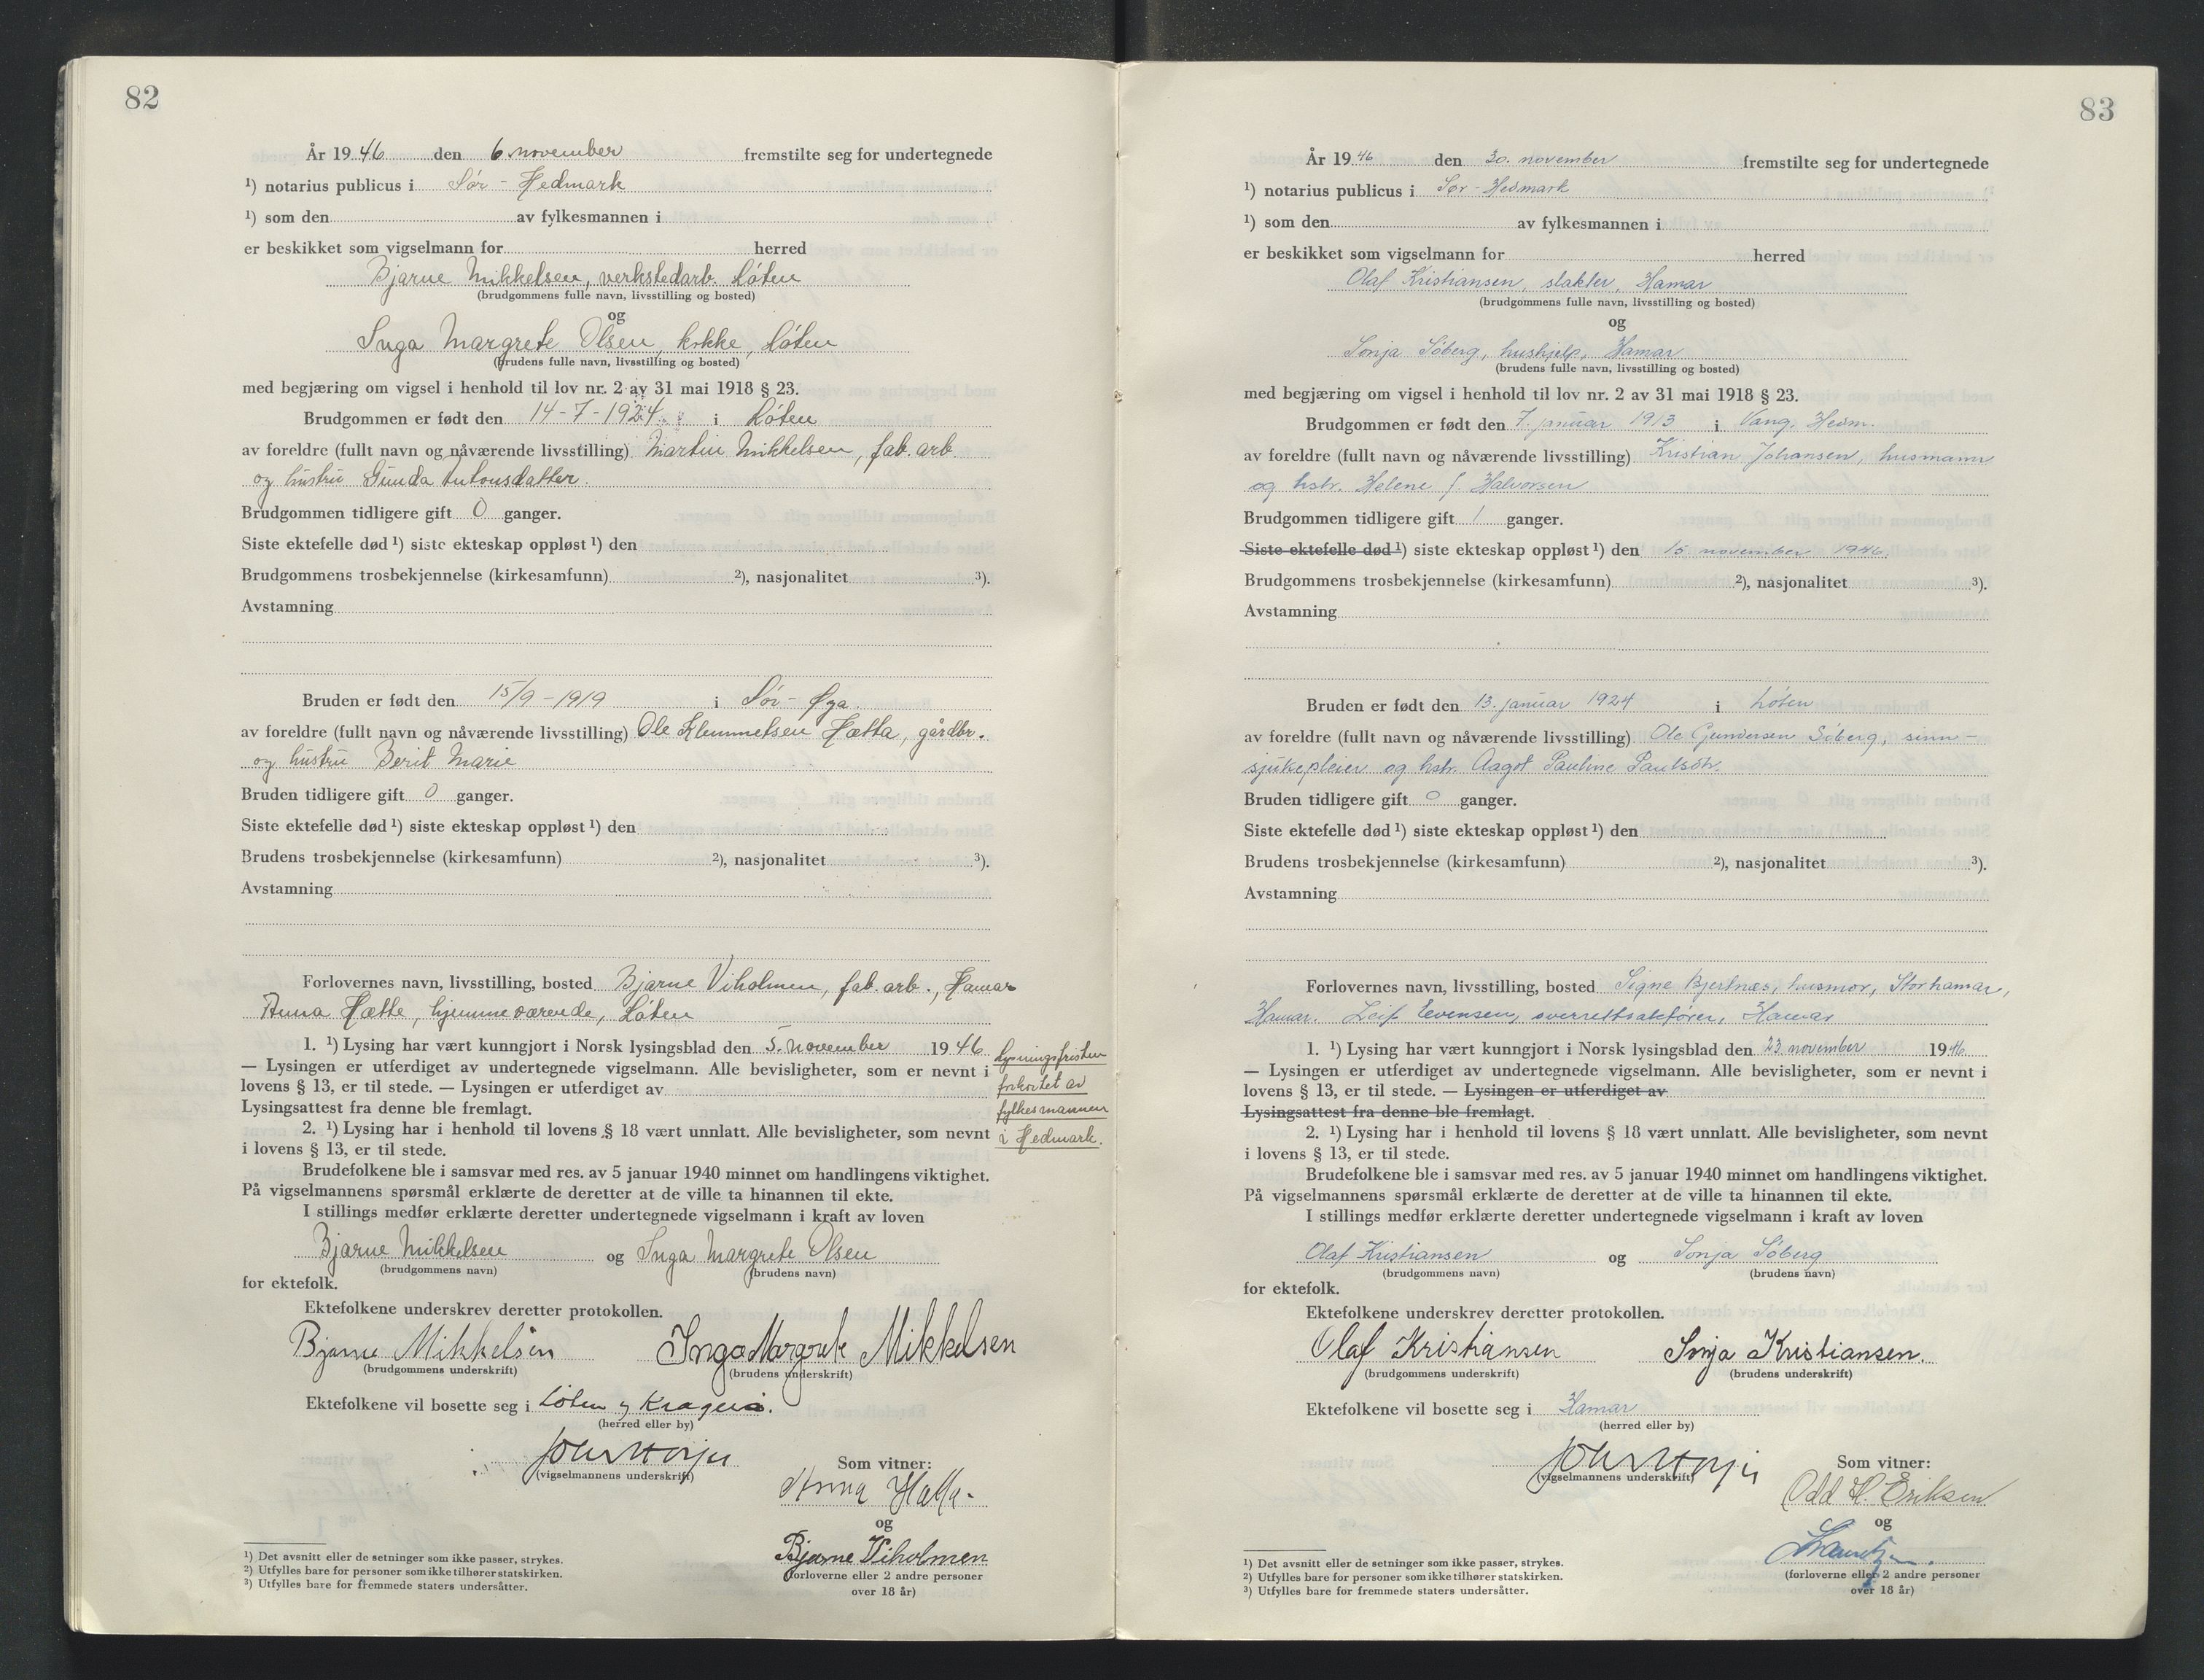 82
År 1946 den 6 november fremstilte seg for undertegnede
¹) notarius publicus i Sör - Hedmark
¹) som den av fylkesmannen i
er beskikket som vigselmann for herred
Bjarne Mikkelsen, verkstedarb. Löten
(brudgommens fulle navn, livsstilling og bosted)
og
Inga Margrete Olsen, kokke, Löten
(brudens fulle navn, livsstilling og bosted)
med begjæring om vigsel i henhold til lov nr. 2 av 31 mai 1918 § 23.
Brudgommen er født den 14-7-1924 i Löten
av foreldre (fullt navn og nåværende livsstilling) Martin Mikkelsen, fab. arb.
og hustru Gunda Antonsdatter.
Brudgommen tidligere gift 0 ganger.
Siste ektefelle død ¹) siste ekteskap oppløst ¹) den
Brudgommens trosbekjennelse (kirkesamfunn) ²), nasjonalitet ³).
Avstamning
Bruden er født den 15/9-1919 i Sör-Øya.
av foreldre (fullt navn og nåværende livsstilling) Ole Klemmetsen Hætta, gårdbr.
og hustru Berit Marie
Bruden tidligere gift 0 ganger.
Siste ektefelle død ¹) siste ekteskap oppløst ¹) den
Brudens trosbekjennelse (kirkesamfunn) ²), nasjonalitet ³).
Avstamning
Forlovernes navn, livsstilling, bosted Bjarne Viholmen, fab. arb., Hamar
Anna Hætte, hjemmeværende, Löten
1. ¹) Lysing har vært kunngjort i Norsk lysingsblad den 5. november 1946
— Lysingen er utferdiget av undertegnede vigselmann. Alle bevisligheter, som er nevnt i
lovens § 13, er til stede. — Lysingen er utferdiget av
Lysingsattest fra denne ble fremlagt.
2. ¹) Lysing har i henhold til lovens § 18 vært unnlatt. Alle bevisligheter, som nevnt
i lovens § 13, er til stede.
lysningsfristen
forkortet av
fylkesmannen
i Hedmark.
Brudefolkene ble i samsvar med res. av 5 januar 1940 minnet om handlingens viktighet.
På vigselmannens spørsmål erklærte de deretter at de ville ta hinannen til ekte.
I stillings medfør erklærte deretter undertegnede vigselmann i kraft av loven
Bjarne Mikkelsen og Inga Margrete Olsen
(brudgommens navn) (brudens navn)
for ektefolk.
Ektefolkene underskrev deretter protokollen.
Bjarne Mikkelsen Inga Margrete Mikkelsen
(brudgommens underskrift) (brudens underskrift)
Ektefolkene vil bosette seg i Löten
(herred eller by)
(vigselmannens underskrift)
Som vitner:
Anna Hætta
og
Bjarne Viholmen
(forloverne eller 2 andre personer
over 18 år)
¹) Det avsnitt eller de setninger som ikke passer, strykes.
²) Utfylles bare for personer som ikke tilhører statskirken.
³) Utfylles bare for fremmede staters undersåtter.
83
År 1946 den 30. november fremstilte seg for undertegnede
¹) notarius publicus i Sør-Hedmark
¹) som den av fylkesmannen i
er beskikket som vigselmann for herred
Olaf Kristiansen, slakter, Hamar
(brudgommens fulle navn, livsstilling og bosted)
og
Sonja Söberg, hushjelp, Hamar
(brudens fulle navn, livsstilling og bosted)
med begjæring om vigsel i henhold til lov nr. 2 av 31 mai 1918 § 23.
Brudgommen er født den 7. januar 1913 i Vang, Hedm.
av foreldre (fullt navn og nåværende livsstilling) Kristian Johansen, husmann
og hstr. Helene f. Halvorsen
Brudgommen tidligere gift 1 ganger.
Siste ektefelle død ¹) siste ekteskap oppløst ¹) den 15 november 1946
Brudgommens trosbekjennelse (kirkesamfunn) ²), nasjonalitet ³).
Avstamning
Bruden er født den 13. januar 1924 i Löten
av foreldre (fullt navn og nåværende livsstilling) Ole Gundersen Söberg, sinn-
sjukepleier og hstr. Aagot Pauline Paulsdtr.
Bruden tidligere gift 0 ganger.
Siste ektefelle død ¹) siste ekteskap oppløst ¹) den
Brudens trosbekjennelse (kirkesamfunn) ²), nasjonalitet ³).
Avstamning
Forlovernes navn, livsstilling, bosted Signe Bjertnæs, husmor, Storhamar,
Hamar. Leif Evensen, overrettssakfører, Hamar
1. ¹) Lysing har vært kunngjort i Norsk lysingsblad den 23 november 1946
— Lysingen er utferdiget av undertegnede vigselmann. Alle bevisligheter, som er nevnt i
lovens § 13, er til stede. — Lysingen er utferdiget av
Lysingsattest fra denne ble fremlagt.
2. ¹) Lysing har i henhold til lovens § 18 vært unnlatt. Alle bevisligheter, som nevnt
i lovens § 13, er til stede.
Brudefolkene ble i samsvar med res. av 5 januar 1940 minnet om handlingens viktighet.
På vigselmannens spørsmål erklærte de deretter at de ville ta hinannen til ekte.
I stillings medfør erklærte deretter undertegnede vigselmann i kraft av loven
Olaf Kristiansen og Sonja Söberg
(brudgommens navn) (brudens navn)
for ektefolk.
Ektefolkene underskrev deretter protokollen.
Olaf Kristiansen Sonja Kristiansen.
(brudgommens underskrift) (brudens underskrift)
Ektefolkene vil bosette seg i Hamar
(herred eller by)
(vigselmannens underskrift)
Som vitner:
Odd H. Eriksen
og
(forloverne eller 2 andre personer
over 18 år)
¹) Det avsnitt eller de setninger som ikke passer, strykes.
²) Utfylles bare for personer som ikke tilhører statskirken.
³) Utfylles bare for fremmede staters undersåtter.